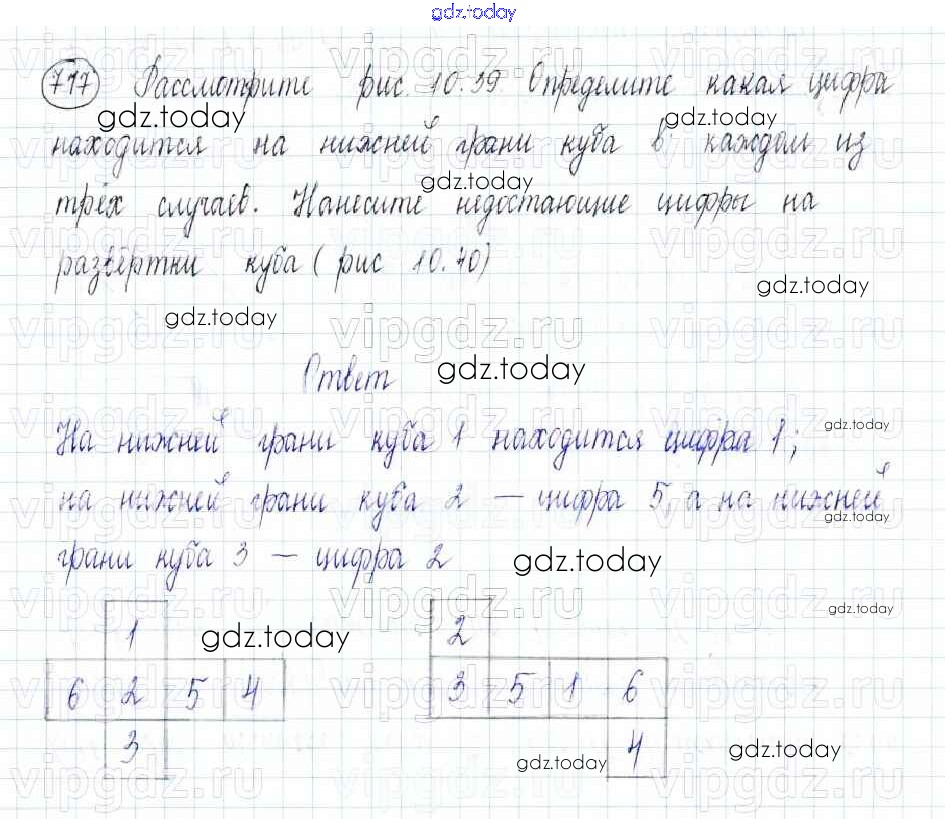 gdz.today
717 Рассмотрите рис. 10.39 Определите какая цифра
gdz.today
находится на нижней грани куба в каждом из
gdz.today
gdz.today
трёх случаев. Нанесите недостающие цифры на
развёртки куба ( рис 10.40)
gdz.today
gdz.today
vipgdz.ru
Ответ
gdz.today
На нижней грани куба 1 находится цифра 1;
gdz.today
на нижней грани куба 2 – цифра 5, а на нижней
gdz.today
грани куба 3 – цифра 2
gdz.today
gdz.today
gdz.today
1 2
6 2 5 4 3 5 1 6
3 4
gdz.today
gdz.today